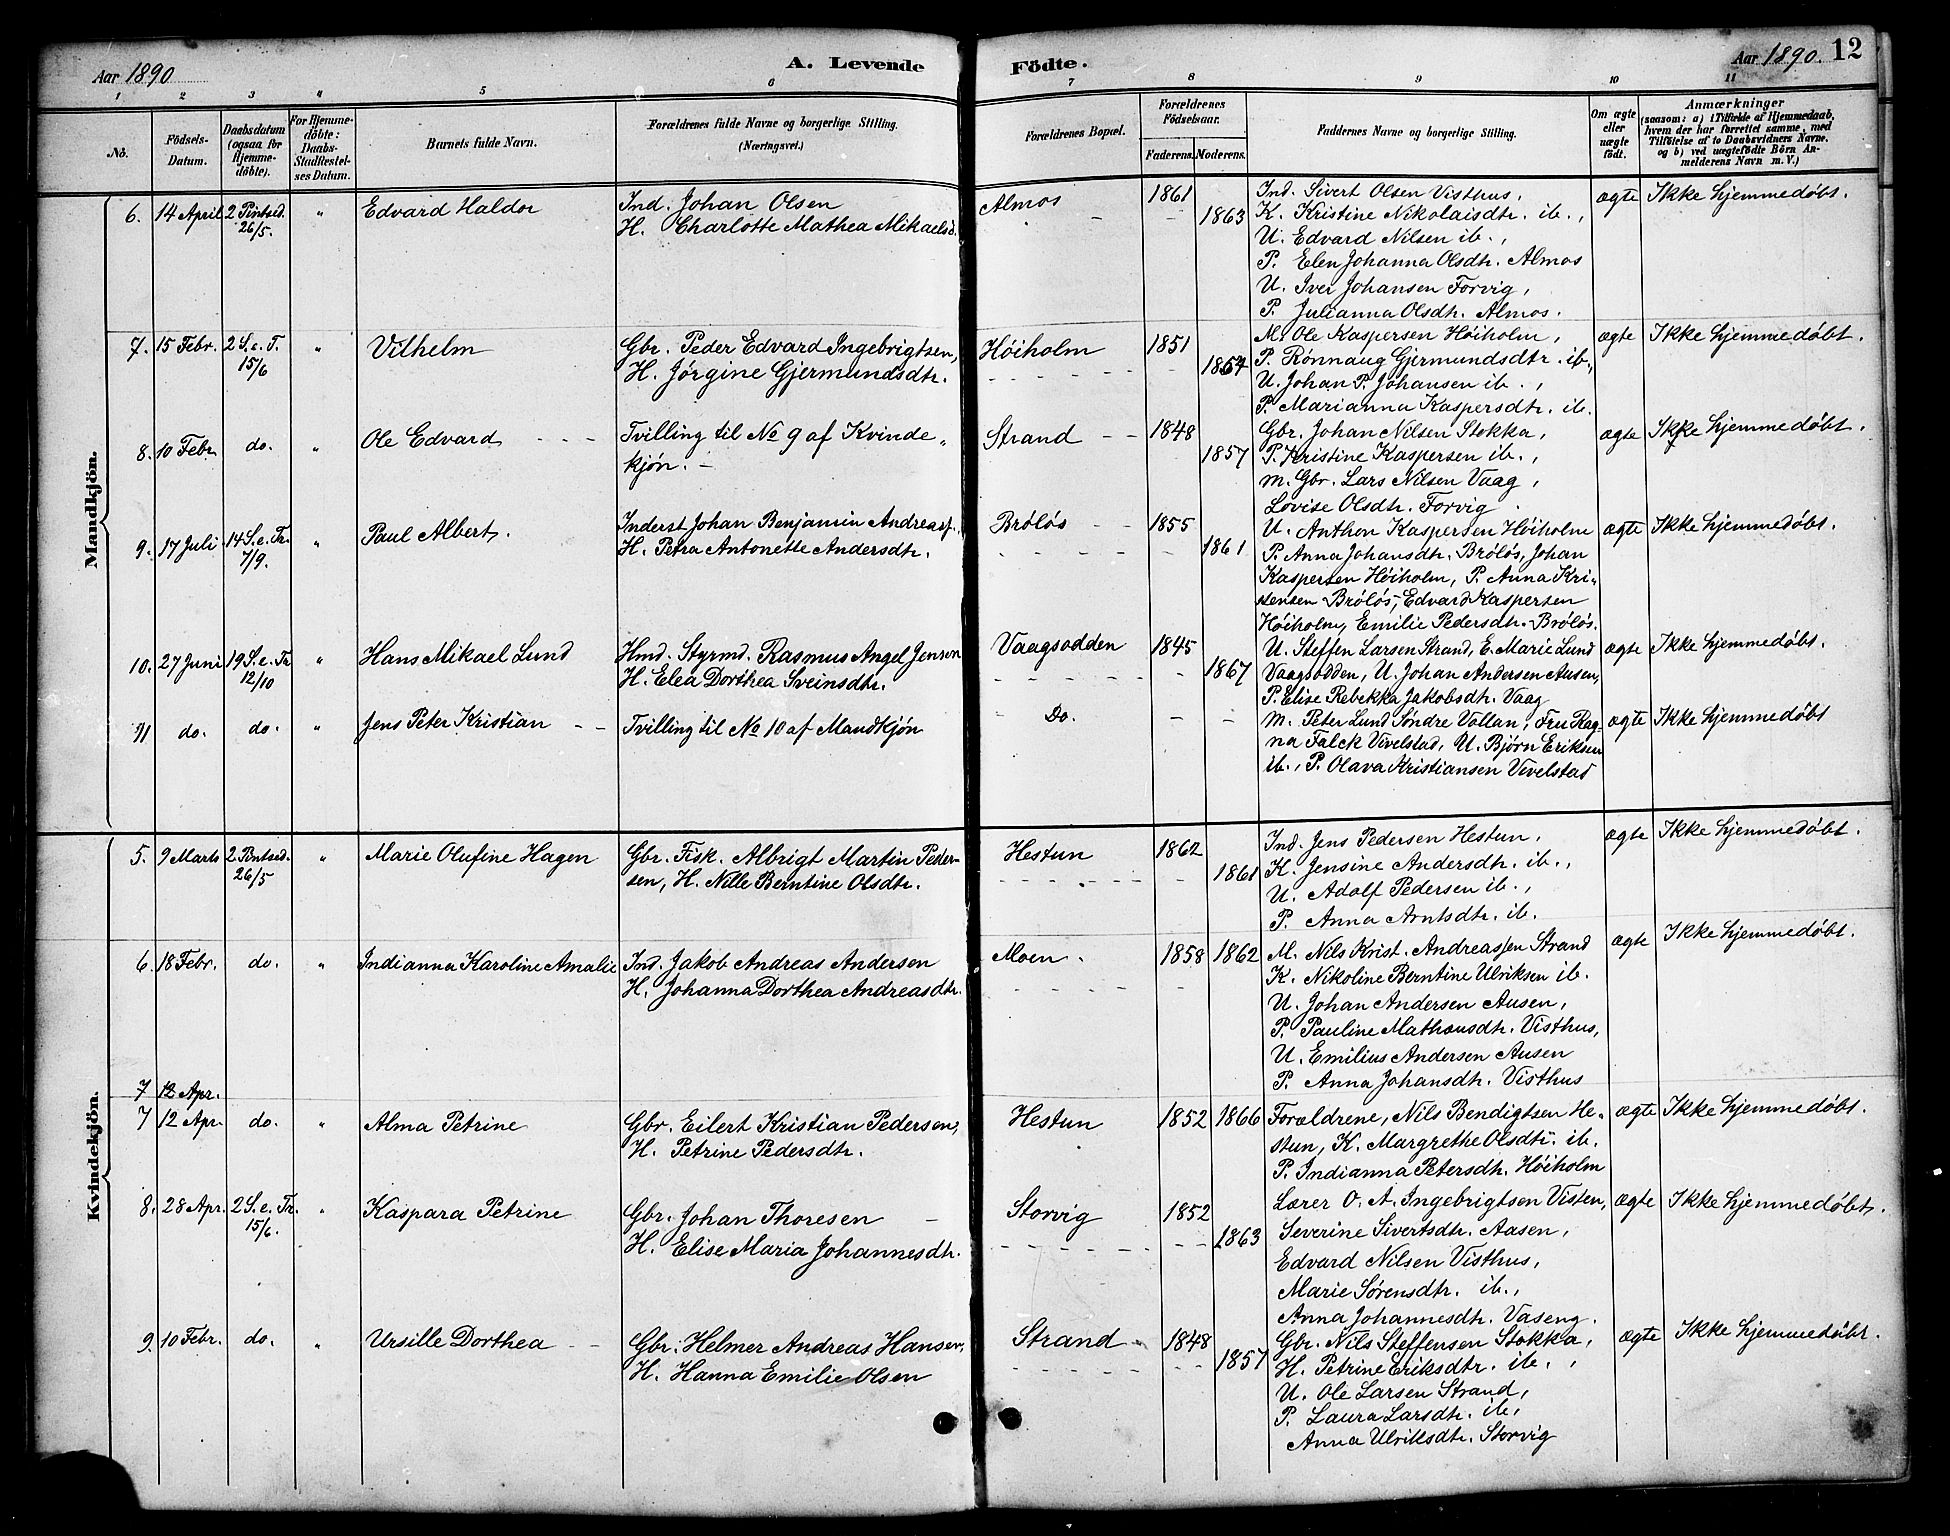 Aar 1890
A. Levende
Födte.
Aar 1890.
12
1 2 3 " 5 6 7 8 9 10 11
No.
Födsels-
Datum.
Daabsdatum
(ogsaa for
Hjemme-
döbte).
For Hjemme-
döbte:
Daabs-
Stadfæstel-
ses Datum.
Barnets fulde Navn.
Forældrenes fulde Navne og borgerlige Stilling.
(Næringsvei.)
Forældrenes Bopæl.
Forældrenes
Födselsaar.
Faderens. Moderens.
Faddernes Navne og borgerlige Stilling.
Om ægte
eller
uægte
födt.
Anmærkninger
(saasom: a) i Tilfælde af Hjemmedaab,
hvem der har forrettet samme, med
Tilföielse af to Daabsvidners Navne,
og b) ved uægtefödte Börn An-
melderens Navn m. V.)
Mandkjön.
6. 14 April 2 Pintsed. " Edvard Haldor Ind. Johan Olsen Almos 1861 Ind. Sivert Olsen Visthus, ægte Ikke hjemmedøbt.
26/5. H. Charlotte Mathea Mikaelsd. 1863 K. Kristine Nikolaisdtr. ib.,
U. Edvard Nilsen ib.,
P. Elen Johanna Olsdtr. Almos
U. Iver Johansen Forvig,
P. Julianna Olsdtr. Almos.
7. 15 Febr. 2 S. e. T. " Vilhelm Gbr. Peder Edvard Ingebrigtsen, Høiholm 1851 M. Ole Kaspersen Høiholm, ægte Ikke hjemmedøbt.
15/6 H. Jørgine Gjermundsdtr. 1854 P. Rønnaug Gjermundsdtr. ib.,
U. Johan P. Johansen ib.,
P. Marianna Kaspersdtr. ib.
8. 10 Febr. do. " Ole Edvard Tvilling til No 9 af Kvinde- Strand 1848 Gbr. Johan Nilsen Stokka, ægte Ikke hjemmedøbt.
kjøn. 1857 P. Kristine Kaspersen ib.,
m. Gbr. Lars Nilsen Vaag,
Lovise Olsdtr. Forvig.
9. 17 Juli 14 S. e. Tr. " Paul Albert. Inderst Johan Benjamin Andreass. Brøløs 1855 U. Anthon Kaspersen Høiholm ægte Ikke hjemmedøbt.
7/9. H. Petra Antonette Andersdtr. 1861 P. Anna Johansdtr. Brøløs, Johan
Kaspersen Høiholm, P. Anna Kri-
stensen Brøløs, Edvard Kaspersen
Høiholm, Emilie Pedersdtr. Brøløs.
10. 27 Juni 19 S. e. Tr. " Hans Mikael Lund Hmd. Styrmd. Rasmus Angel Jensen Vaagsodden 1845 U. Steffen Larsen Strand, E. Marie Lund ægte Ikke hjemmedøbt.
12/10 H. Elea Dorthea Sveinsdtr. 1867 Vaagsodden, U. Johan Andersen Ausen,
P. Elise Rebekka Jakobsdtr. Vaag
11 do. do. " Jens Peter Kristian Tvilling til No 10 af Mandkjøn Do. m. Peter Lund Søndre Vollan, Fru Rag- ægte Ikke hjemmedøbt
na Falck Vivelstad, U. Bjørn Eriksen
ib., P. Olava Kristiansen Vivelstad
Kvindekjön.
5. 9 Marts 2 Pintsed. " Marie Olufine Hagen Gbr. Fisk. Albrigt Martin Peder- Hestun 1862 Ind. Jens Pedersen Hestun, ægte Ikke hjemmedøbt.
26/5 sen, H. Nille Berntine Olsdtr. 1861 K. Jensine Andersdtr. ib.,
U. Adolf Pedersen ib.,
P. Anna Arntsdtr. ib.
6. 18 Febr. do. " Indianna Karoline Amalie Ind. Jakob Andreas Andersen Moen. 1858 1862 M. Nils Krist. Andreassen Strand ægte Ikke hjemmedøbt.
H. Johanna Dorthea Andreasdtr. K. Nikoline Berntine Ulriksen ib.
U. Johan Andersen Ausen,
P. Pauline Mathæusdtr. Visthus,
U. Emilius Andersen Ausen
7 12 Apr. P. Anna Johansdtr. Visthus
7 12 Apr. do. " Alma Petrine Gbr. Eilert Kristian Pedersen, Hestun 1852 1866 Forældrene, Nils Bendigtsen He- ægte Ikke hjemmedøbt.
H. Petrine Pedersdtr. stun, K. Margrethe Olsdtr. ib.
P. Indianna Petersdtr. Høiholm
8. 28 Apr. 2 S. e. Tr. " Kaspara Petrine Gbr. Johan Thoresen Storvig 1852 Lærer O. A. Ingebrigtsen Visten, ægte Ikke hjemmedøbt.
15/6. H. Elise Maria Johannesdtr. 1863 Severine Sivertsdtr. Aasen,
Edvard Nilsen Visthus,
Marie Sørensdtr. ib.,
Anna Johannesdtr. Vaseng.
9. 10 Febr. do. " Ursille Dorthea Gbr. Helmer Andreas Hansen, Strand 1848 Gbr. Nils Steffensen Stokka, ægte Ikke hjemmedøbt.
H. Hanna Emilie Olsen 1857 H. Petrine Eriksdtr. ib.,
U. Ole Larsen Strand,
P. Laura Larsdtr. ib.,
Anna Ulriksdtr. Storvig